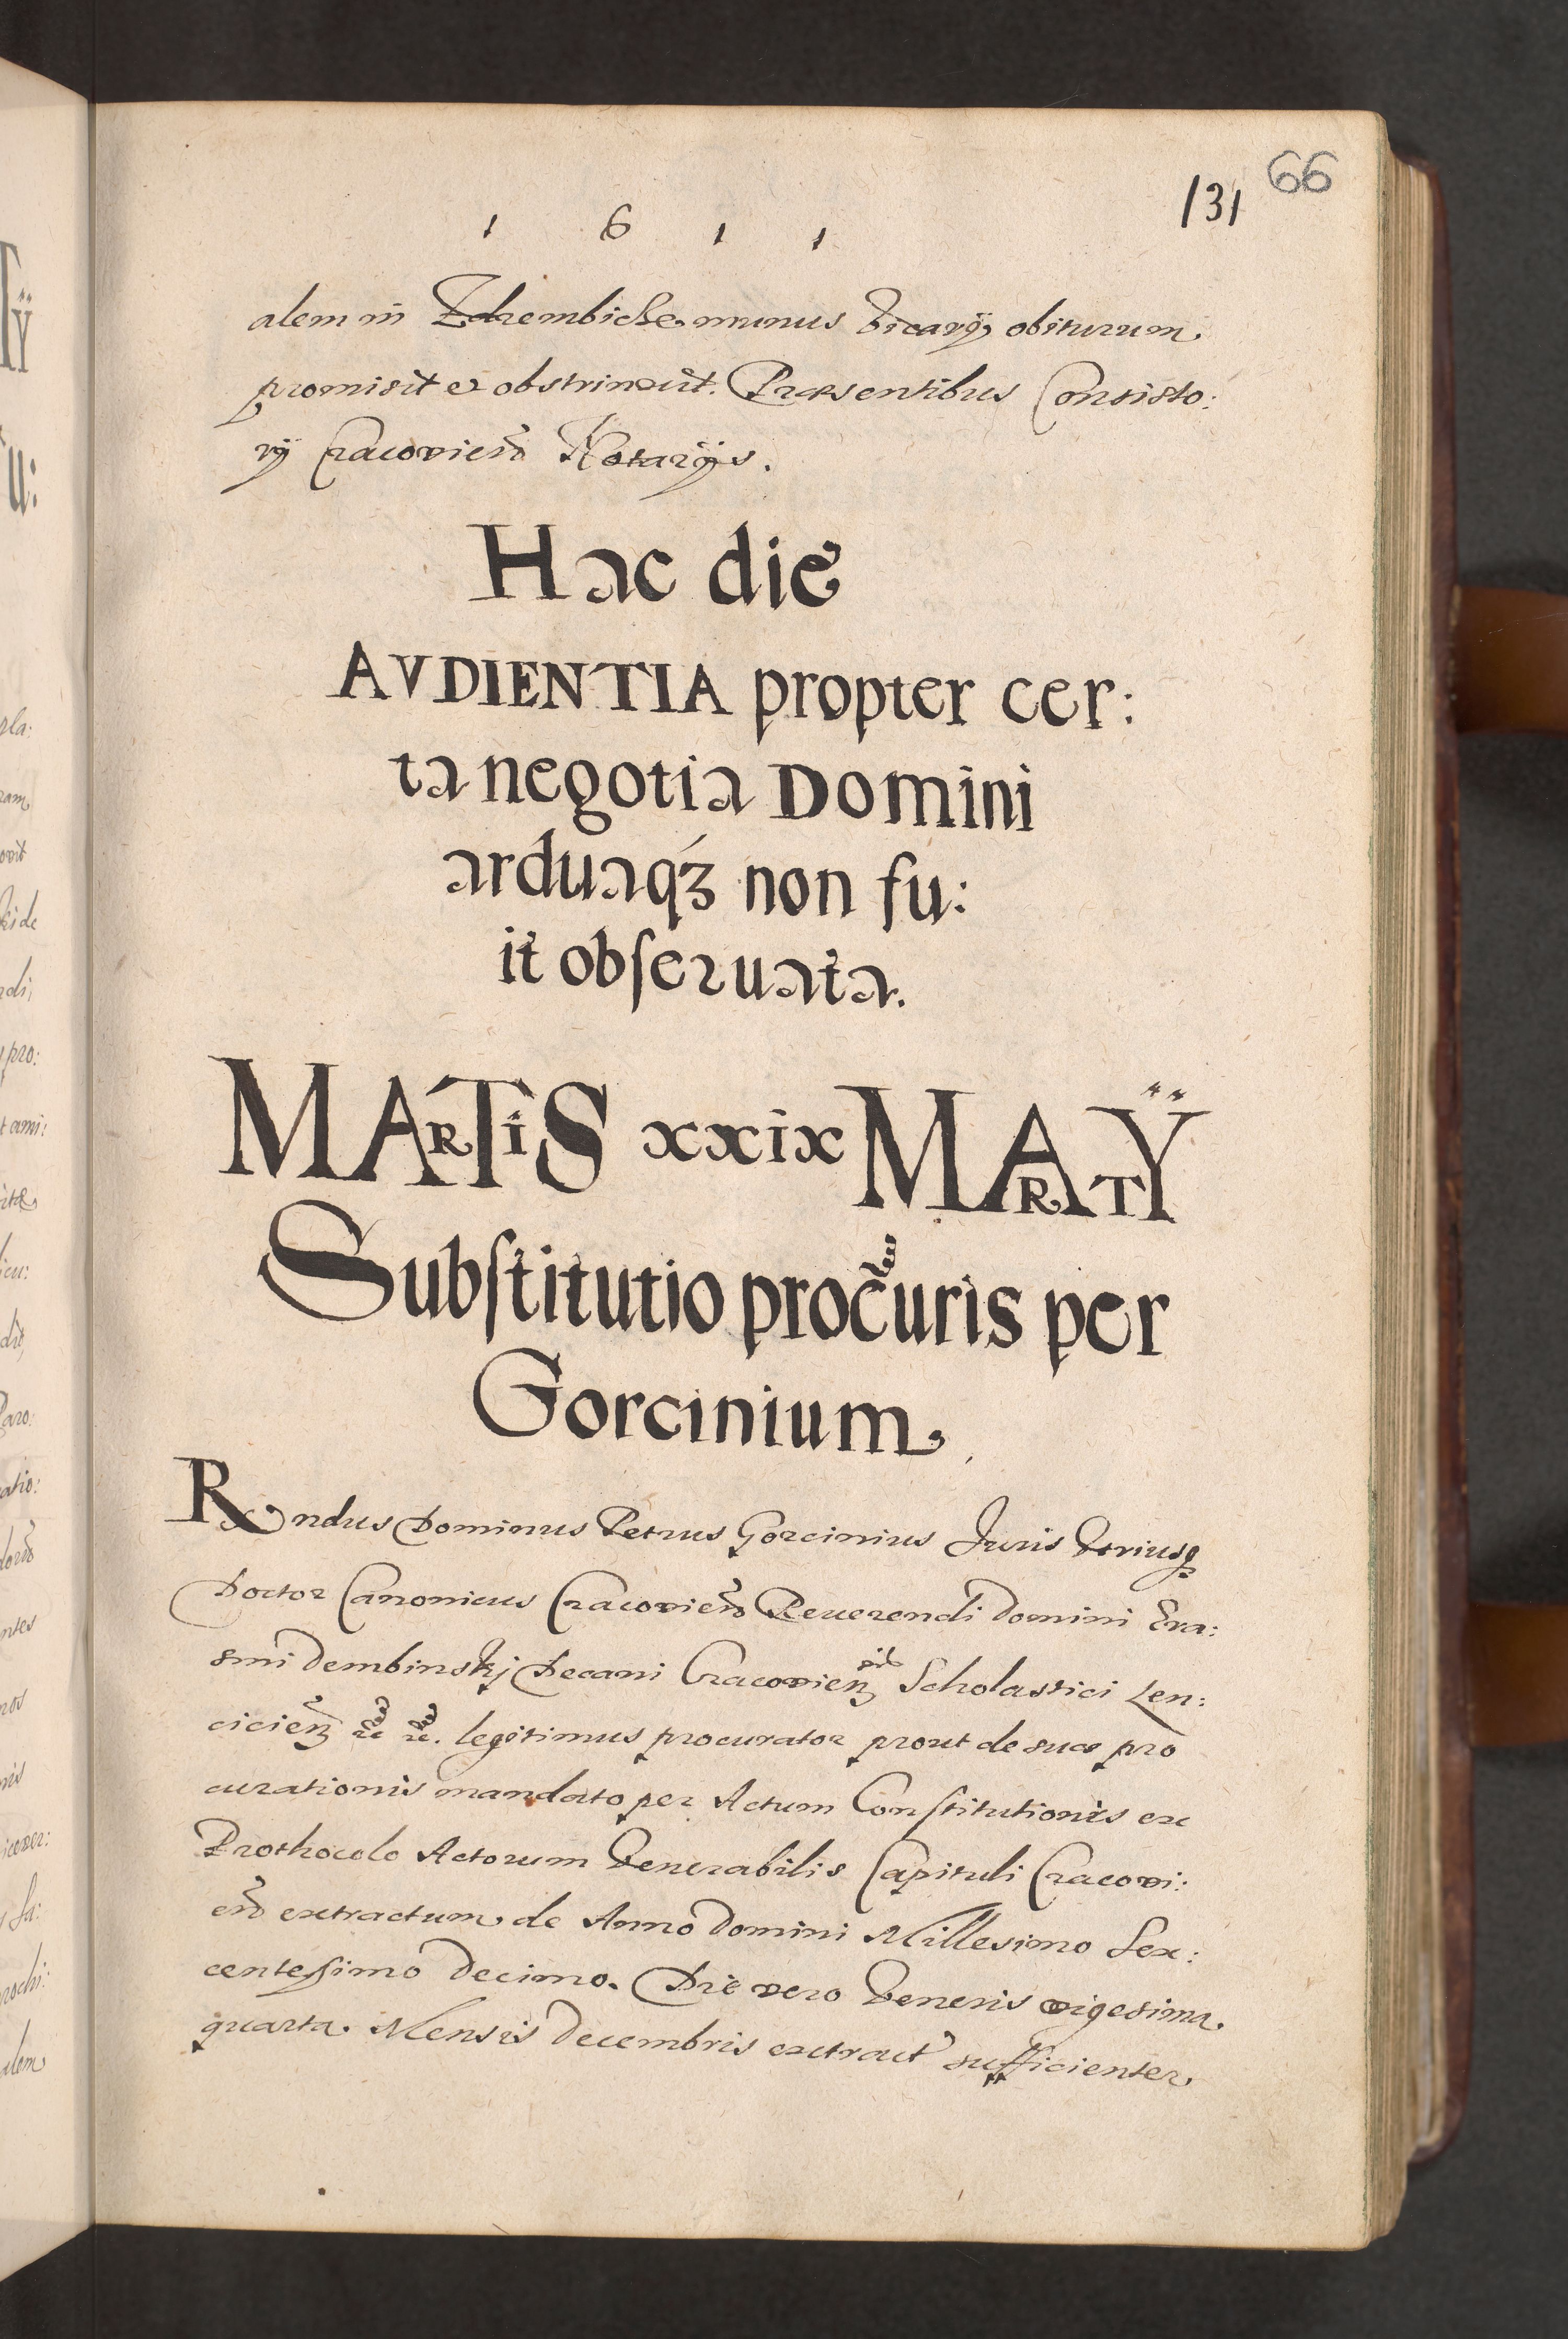 66
131
1 6 1 1
alem in Zdrembicke munus Vicarÿ obiturum
promisit et obstrinxit. Præsentibus Consisto:
rÿ Cracovien̄ Notarÿs.
Hac die
AVDIENTIA propter cer:
ta negotia Domini
arduaqꝫ non fu:
it obſeruata.
MARTiS xxix MARTŸ
Subſtitutio proc̃uris per
Gorcinium
Rndus Dominus Petrus Gorcinius Juris Vtriusqꝫ
Doctor Canonicus Cracovien̄ Reuerendi Domini Era:
smi Dembinskj Decani Cracovien̄ Scholastici Len:
cicien̄ &c &c. legitimus procurator prout de suæ pro
curationis mandato per Actum Conſtitutionis ex
Prothocolo Actorum Venerabilis Capituli Cracovi:
en̄ extractum de Anno Domini Millesimo Sex:
centeſsimo Decimo. Die vero Veneris vigesima
quarta Mensis Decembris extract̃ sufficienter